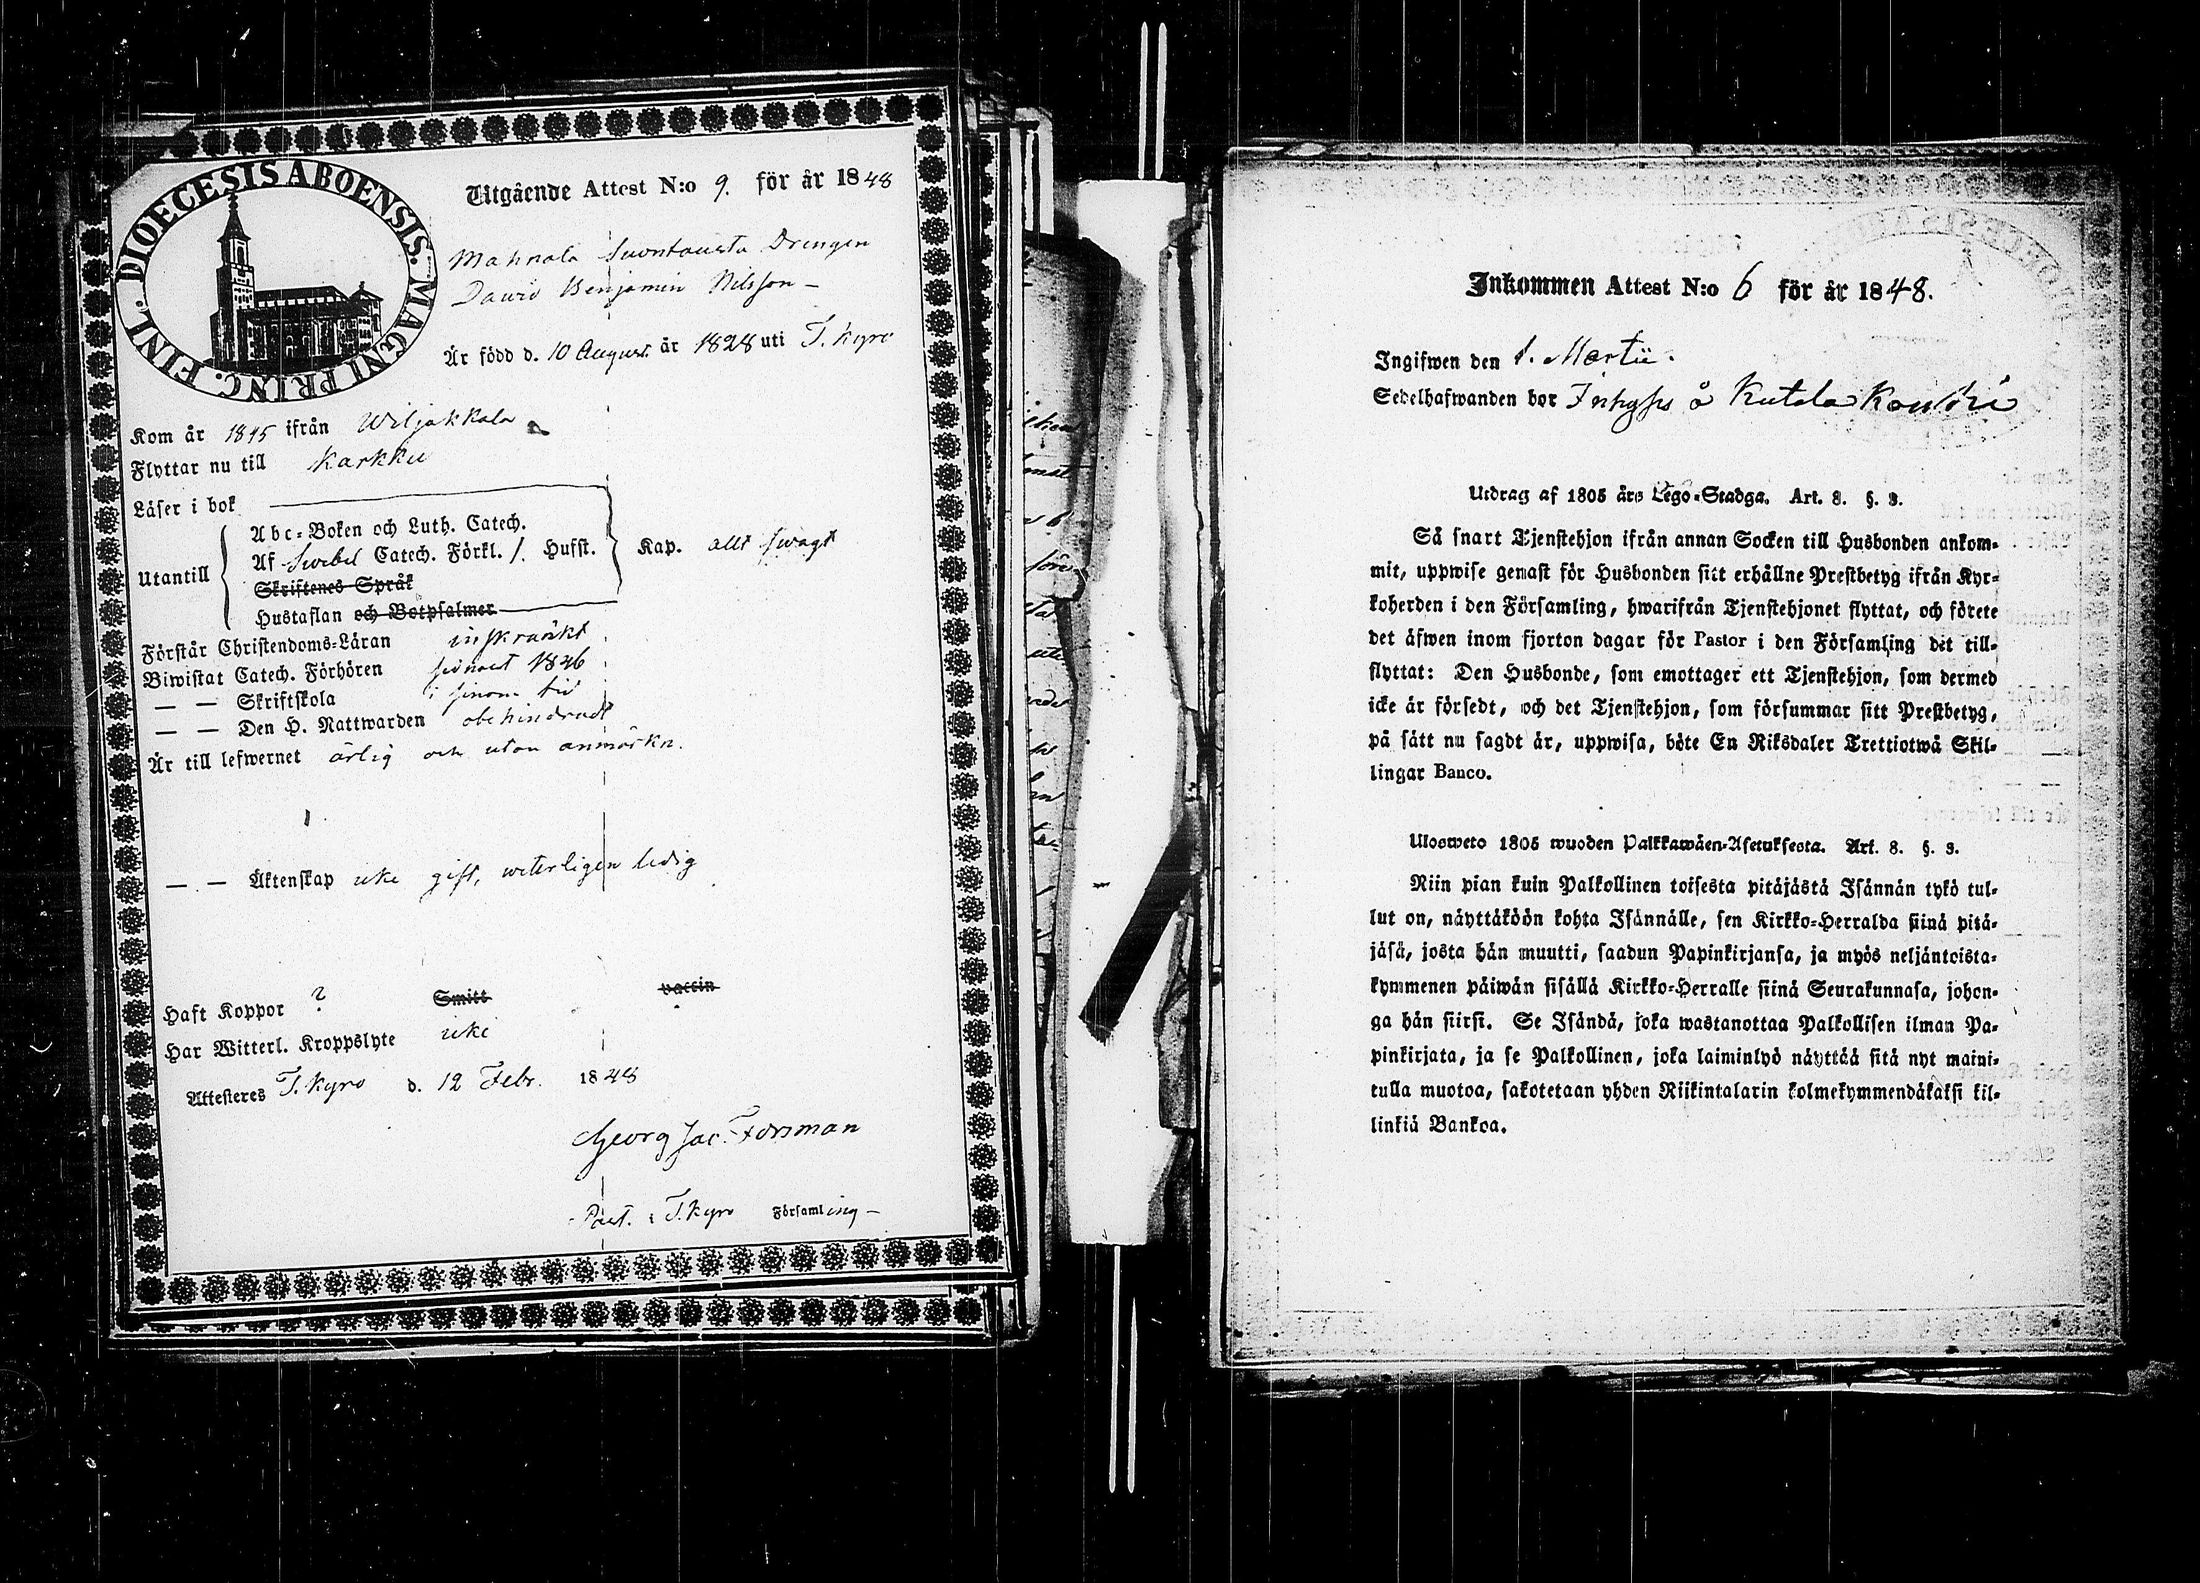 DIOECESIS ABOENSIS. MAGNI PRINC. FINL.
Utgående Attest N:o 9. för år 1848
Mahnala Suontausta Drengen
David Benjamin Nilsson —
Är född d. 10 August. år 1828 uti T. Kyro
Kom år 1845 ifrån Wiljakkala
Flyttar nu till Karkku
Läser i bok
Utantill
Abc-Boken och Luth. Catech.
Af Svebel Catech. Förkl. /. Husst. Kap. allt svagt
Skriftenes Språk
Hustaflan och Botpsalmer
Förstår Christendoms-Läran inskränkt
Biwistat Catech. Förhören sednast 1846
— — Skriftskola i sinom tid
— — Den H. Nattwarden obehindradt
Är till lefwernet ärlig och utan anmärkn.
— — Äktenskap icke gift, veterligen ledig
Haft Koppor ? Smitt vaccin
Har Witterl. Kroppslyte icke
Attesteres T. Kyro d. 12 Febr. 1848
Georg Jac. Forsman
Past. i T. Kyro Församling —
Inkommen Attest N:o 6 för år 1848.
Ingifwen den 1. Martii.
Sedelhafwanden bor Inhyses å Kutala
Utdrag af 1805 års Lego-Stadga. Art. 8. §. 3.
Så snart Tjenstehjon ifrån annan Socken till Husbonden ankom-
mit, uppwise genast för Husbonden sitt erhållne Prestbetyg ifrån Kyr-
koherden i den Församling, hwarifrån Tjenstehjonet flyttat, och förete
det äfwen inom fjorton dagar för Pastor i den Församling det till-
flyttat: Den Husbonde, som emottager ett Tjenstehjon, som dermed
icke är försedt, och det Tjenstehjon, som försummar sitt Prestbetyg,
på sätt nu sagdt är, uppwisa, böte En Riksdaler Trettiotwå Skil-
lingar Banco.
Ulosweto 1805 wuoden Palkkawäen-Asetuksesta. Art. 8. §. 3.
Niin pian kuin Palkollinen toisesta pitäjästä Isännän tykö tul-
lut on, näyttäköön kohta Isännälle, sen Kirkko-Herralda siinä pitä-
jäsä, josta hän muutti, saadun Papinkirjansa, ja myös neljäntoista-
kymmenen päiwän sisällä Kirkko-Herralle siinä Seurakunnasa, johon-
ga hän siirsi. Se Isändä, joka wastanottaa Palkollisen ilman Pa-
pinkirjata, ja se Palkollinen, joka laiminlyö näyttää sitä nyt maini-
tulla muotoa, sakotetaan yhden Riikintalarin kolmekymmendäkaksi kil-
linkiä Bankoa.